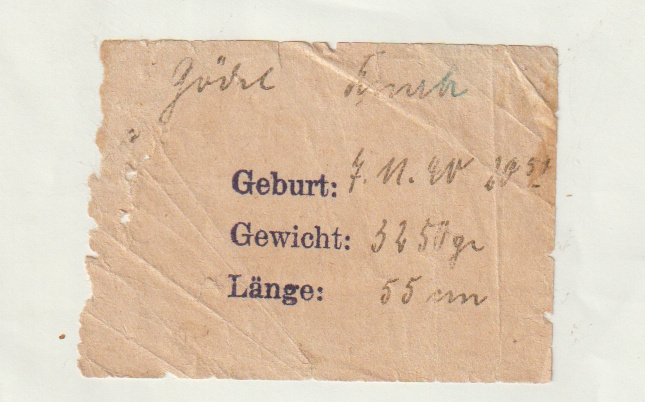 Gödel
Geburt: 7. 11. 40
Gewicht: 3250 gr
Länge: 55 cm